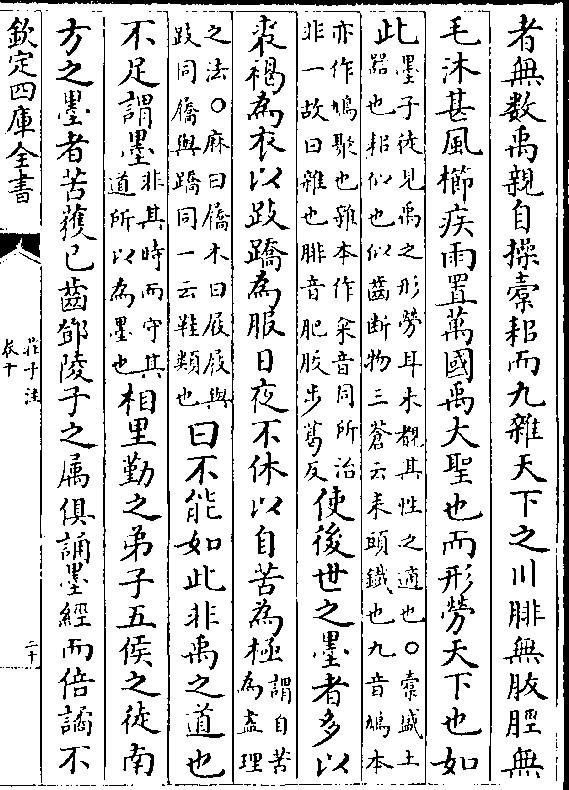 者無数禹親自操橐耜而九雜天下之川腓無胈脛無
毛沐甚風櫛疾雨置萬國禹大聖也而形勞天下也如
此墨子徒見禹之形勞耳未覩其性之適也○橐盛土
器也耜似也似齒断物三蒼云耒頭鐵也九音鳩本
亦作鳩聚也雜本作籴音同所治
非一故曰雜也腓音肥胈步葛反使後世之墨者多以
裘褐為衣以跂蹻為服日夜不休以自苦為極謂自苦
為盡理
之法○麻曰屩木曰屐屐與
跂同屩與蹻同一云鞋類也曰不能如此非禹之道也
不足謂墨非其時而守其
道所以為墨也相里勤之弟子五侯之徒南
方之墨者苦獲已齒鄧陵子之屬俱誦墨經而倍譎不
欽定四庫全書
莊子注
卷十
二十